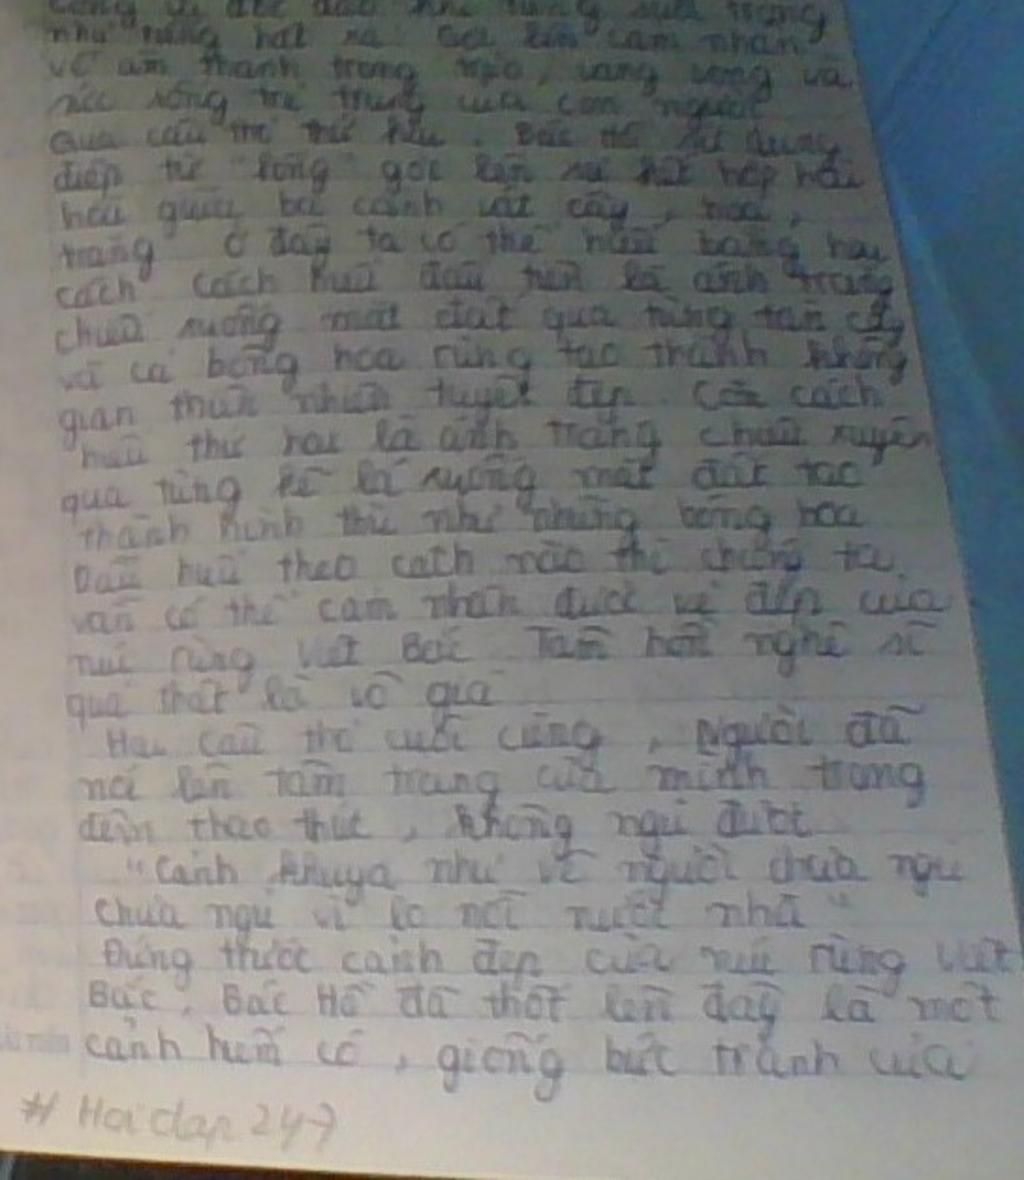 như tiếng hát xa. Gợi lên cảm nhận
về âm thanh trong trẻo, vang vọng và
sức sống trẻ trung của con người
Qua câu thơ thứ hai. Bác Hồ sử dụng
điệp từ "lồng" gợi lên sự kết hợp hài
hoà giữa ba cảnh vật cây, hoa,
trăng Ở đây ta có thể hiểu bằng hai
cách cách hiểu đầu tiên là ánh trăng
chiếu xuống mặt đất qua từng tán cây
và cả bông hoa rừng tạo thành không
gian thiên nhiên tuyệt đẹp. Còn cách
hiểu thứ hai là ánh trăng chiếu xuyên
qua từng kẽ lá xuống mặt đất tạo
thành hình thù như những bông hoa
Dẫu hiểu theo cách nào thì chúng ta
vẫn có thể cảm nhận được vẻ đẹp của
núi rừng Việt Bắc. Tâm hồn nghệ sĩ
quả thật là vô giá
Hai câu thơ cuối cùng, Người đã
nói lên tâm trạng của mình trong
đêm thao thức, không ngủ được
"Cảnh khuya như vẽ người chưa ngủ
Chưa ngủ vì lo nỗi nước nhà"
Đứng trước cảnh đẹp của núi rừng Việt
Bắc, Bác Hồ đã thốt lên đây là một
cảnh hiếm có, giống bức tranh của
# Hoidap247